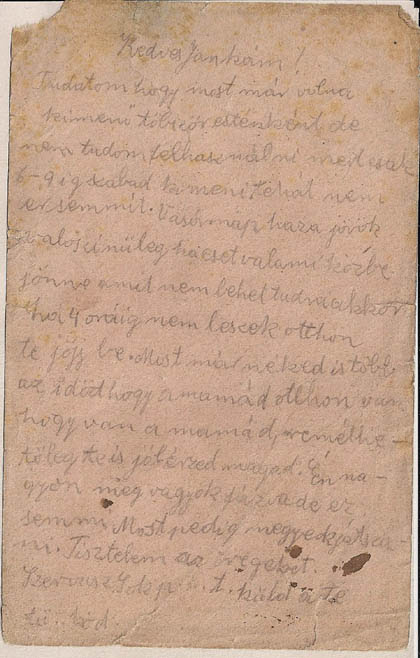 Kedves Jankám!
Tudatom hogy most már volna
kimenő többször esténként de
nem tudom felhasználni mert csak
6-9 ig szabad kimeni tehát nem
ér semmit. Vasárnap haza jövök
valószínűleg ha eset valami közbe
jönne amit nem lehet tudni akkor
ha 4 oráig nem leszek otthon
te jőjj be. Most már néked is több
az időd hogy a mamád otthon van
hogy van a mamád, remélhe-
tőleg te is jól érzed magad. Én na-
gyon meg vagyok fázva de ez
semmi. Most pedig
ni. Tisztelem az öregeket.
t. küld a te